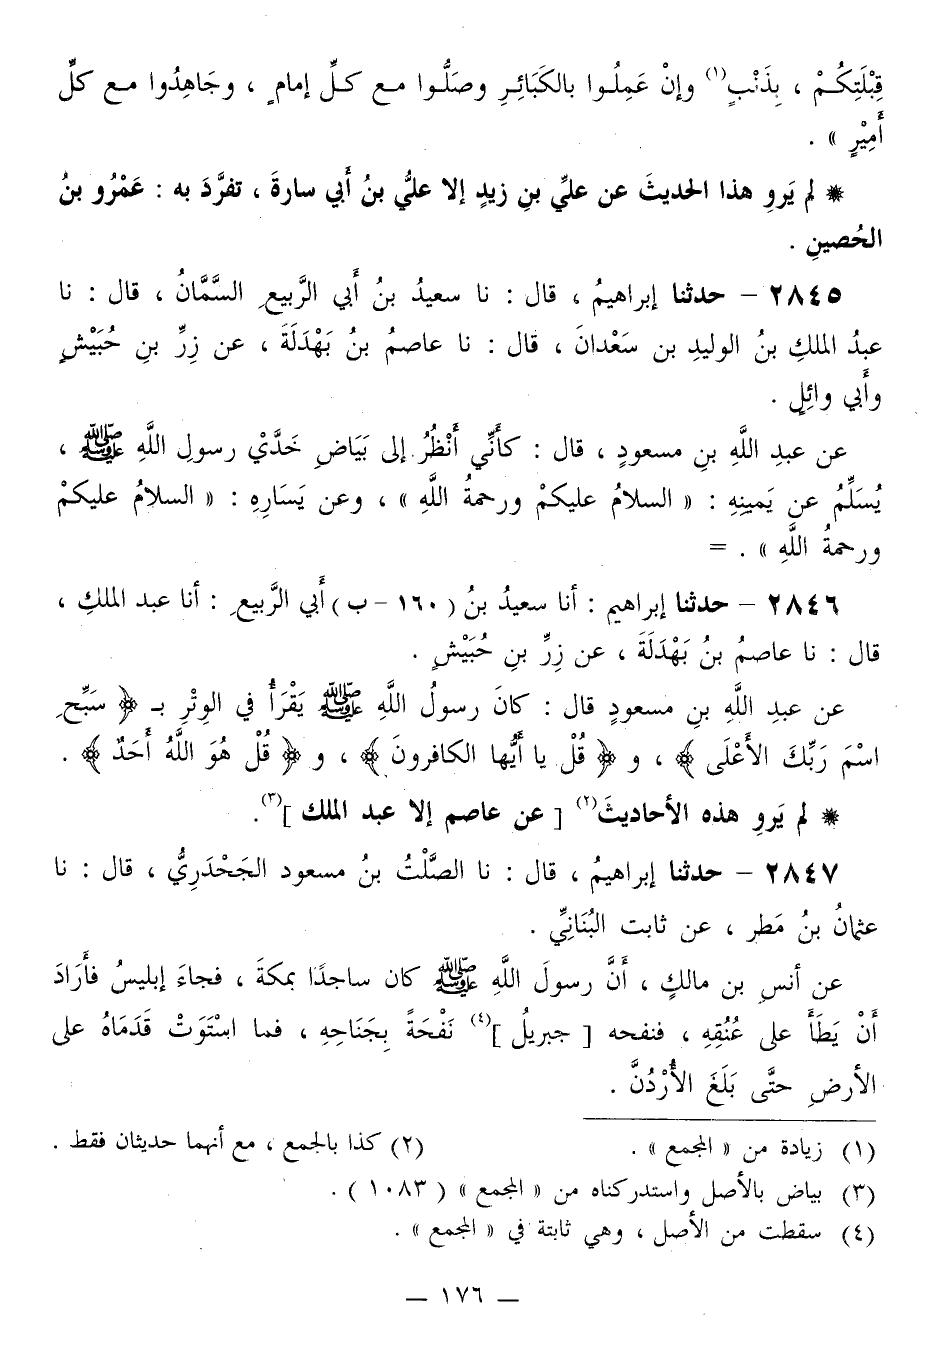 قِبْلَتِكُمْ ، بِذَنْبٍ(١) وإنْ عَمِلُوا بالكَبَائِرِ وصَلُّوا مع كلِّ إمامٍ ، وجَاهِدُوا مع كلِّ
أَمِيْرٍ » .
* لم يَروِ هذا الحديثَ عن عليِّ بنِ زيدٍ إلا عليُّ بنُ أبي سارةَ ، تفرَّدَ به : عَمْرُو بنُ
الحُصينِ .
٢٨٤٥ – حدثنا إبراهيمُ ، قال : نا سعيدُ بنُ أبي الرَّبيعِ السَّمَّانُ ، قال : نا
عبدُ الملكِ بنُ الوليدِ بن سَعْدانَ ، قال : نا عاصمُ بنُ بَهْدَلَةَ ، عن زِرِّ بنِ حُبَيْشٍ
وأبي وائِلٍ .
عن عبدِ اللَّهِ بنِ مسعودٍ ، قال : كأنِّي أَنْظُرُ إلى بَيَاضِ خَدَّيْ رسولِ اللَّهِ ﷺ ،
يُسَلِّمُ عن يَمينِهِ : « السلامُ عليكمْ ورحمةُ اللَّهِ » ، وعن يَسَارِهِ : « السلامُ عليكمْ
ورحمةُ اللَّهِ » . =
٢٨٤٦ – حدثنا إبراهيم : أنا سعيدُ بنُ ( ١٦٠ – ب ) أبي الرَّبيعِ : أنا عبد الملكِ ،
قال : نا عاصمُ بنُ بَهْدَلَةَ ، عن زِرِّ بنِ حُبَيْشٍ .
عن عبدِ اللَّهِ بن مسعودٍ قال : كانَ رسولُ اللَّهِ ﷺ يَقْرَأُ في الوِتْرِ بـ ﴿ سَبِّحِ
اسْمَ رَبِّكَ الأَعْلَى ﴾ ، و ﴿ قُلْ يا أَيُّها الكافرونَ ﴾ ، و ﴿ قُلْ هُوَ اللَّهُ أَحَدٌ ﴾ .
* لم يَروِ هذه الأحاديثَ(٢) [ عن عاصم إلا عبد الملك ](٣).
٢٨٤٧ – حدثنا إبراهيمُ ، قال : نا الصَّلْتُ بنُ مسعود الجَحْدَرِيُّ ، قال : نا
عثمانُ بنُ مَطر ، عن ثابت البُنَانِّي .
عن أنسِ بن مالكٍ ، أنَّ رسولَ اللَّهِ ﷺ كان ساجدًا بمكةَ ، فجاءَ إبليسُ فأَرَادَ
أَنْ يَطَأَ على عُنُقِهِ ، فنفحه [ جبريلُ ](٤) نَفْحَةً بِجَنَاحِهِ ، فما اسْتَوَتْ قَدَمَاهُ على
الأرضِ حتَّى بَلَغَ الأُرْدُنَّ .
(١) زيادة من « المجمع » . (٢) كذا بالجمع ، مع أنهما حديثان فقط .
(٣) بياض بالأصل واستدركناه من « المجمع » ( ١٠٨٣ ) .
(٤) سقطت من الأصل ، وهي ثابتة في « المجمع » .
– ١٧٦ –